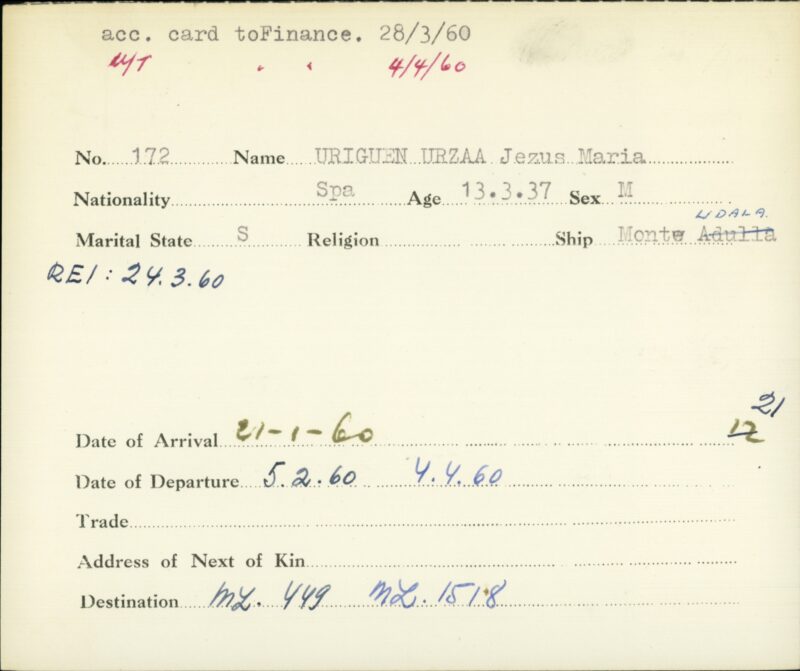 acc. card toFinance. 28/3/60
M/T " " 4/4/60
No. 172 Name URIGUEN URZAA Jezus Maria
Nationality Spa Age 13.3.37 Sex M
UDALA.
Marital State S Religion Ship Monte Adulla
REI: 24.3.60
21
Date of Arrival 21-1-60 12
Date of Departure 5.2.60 4.4.60
Trade
Address of Next of Kin
Destination ML. 449 ML. 1518